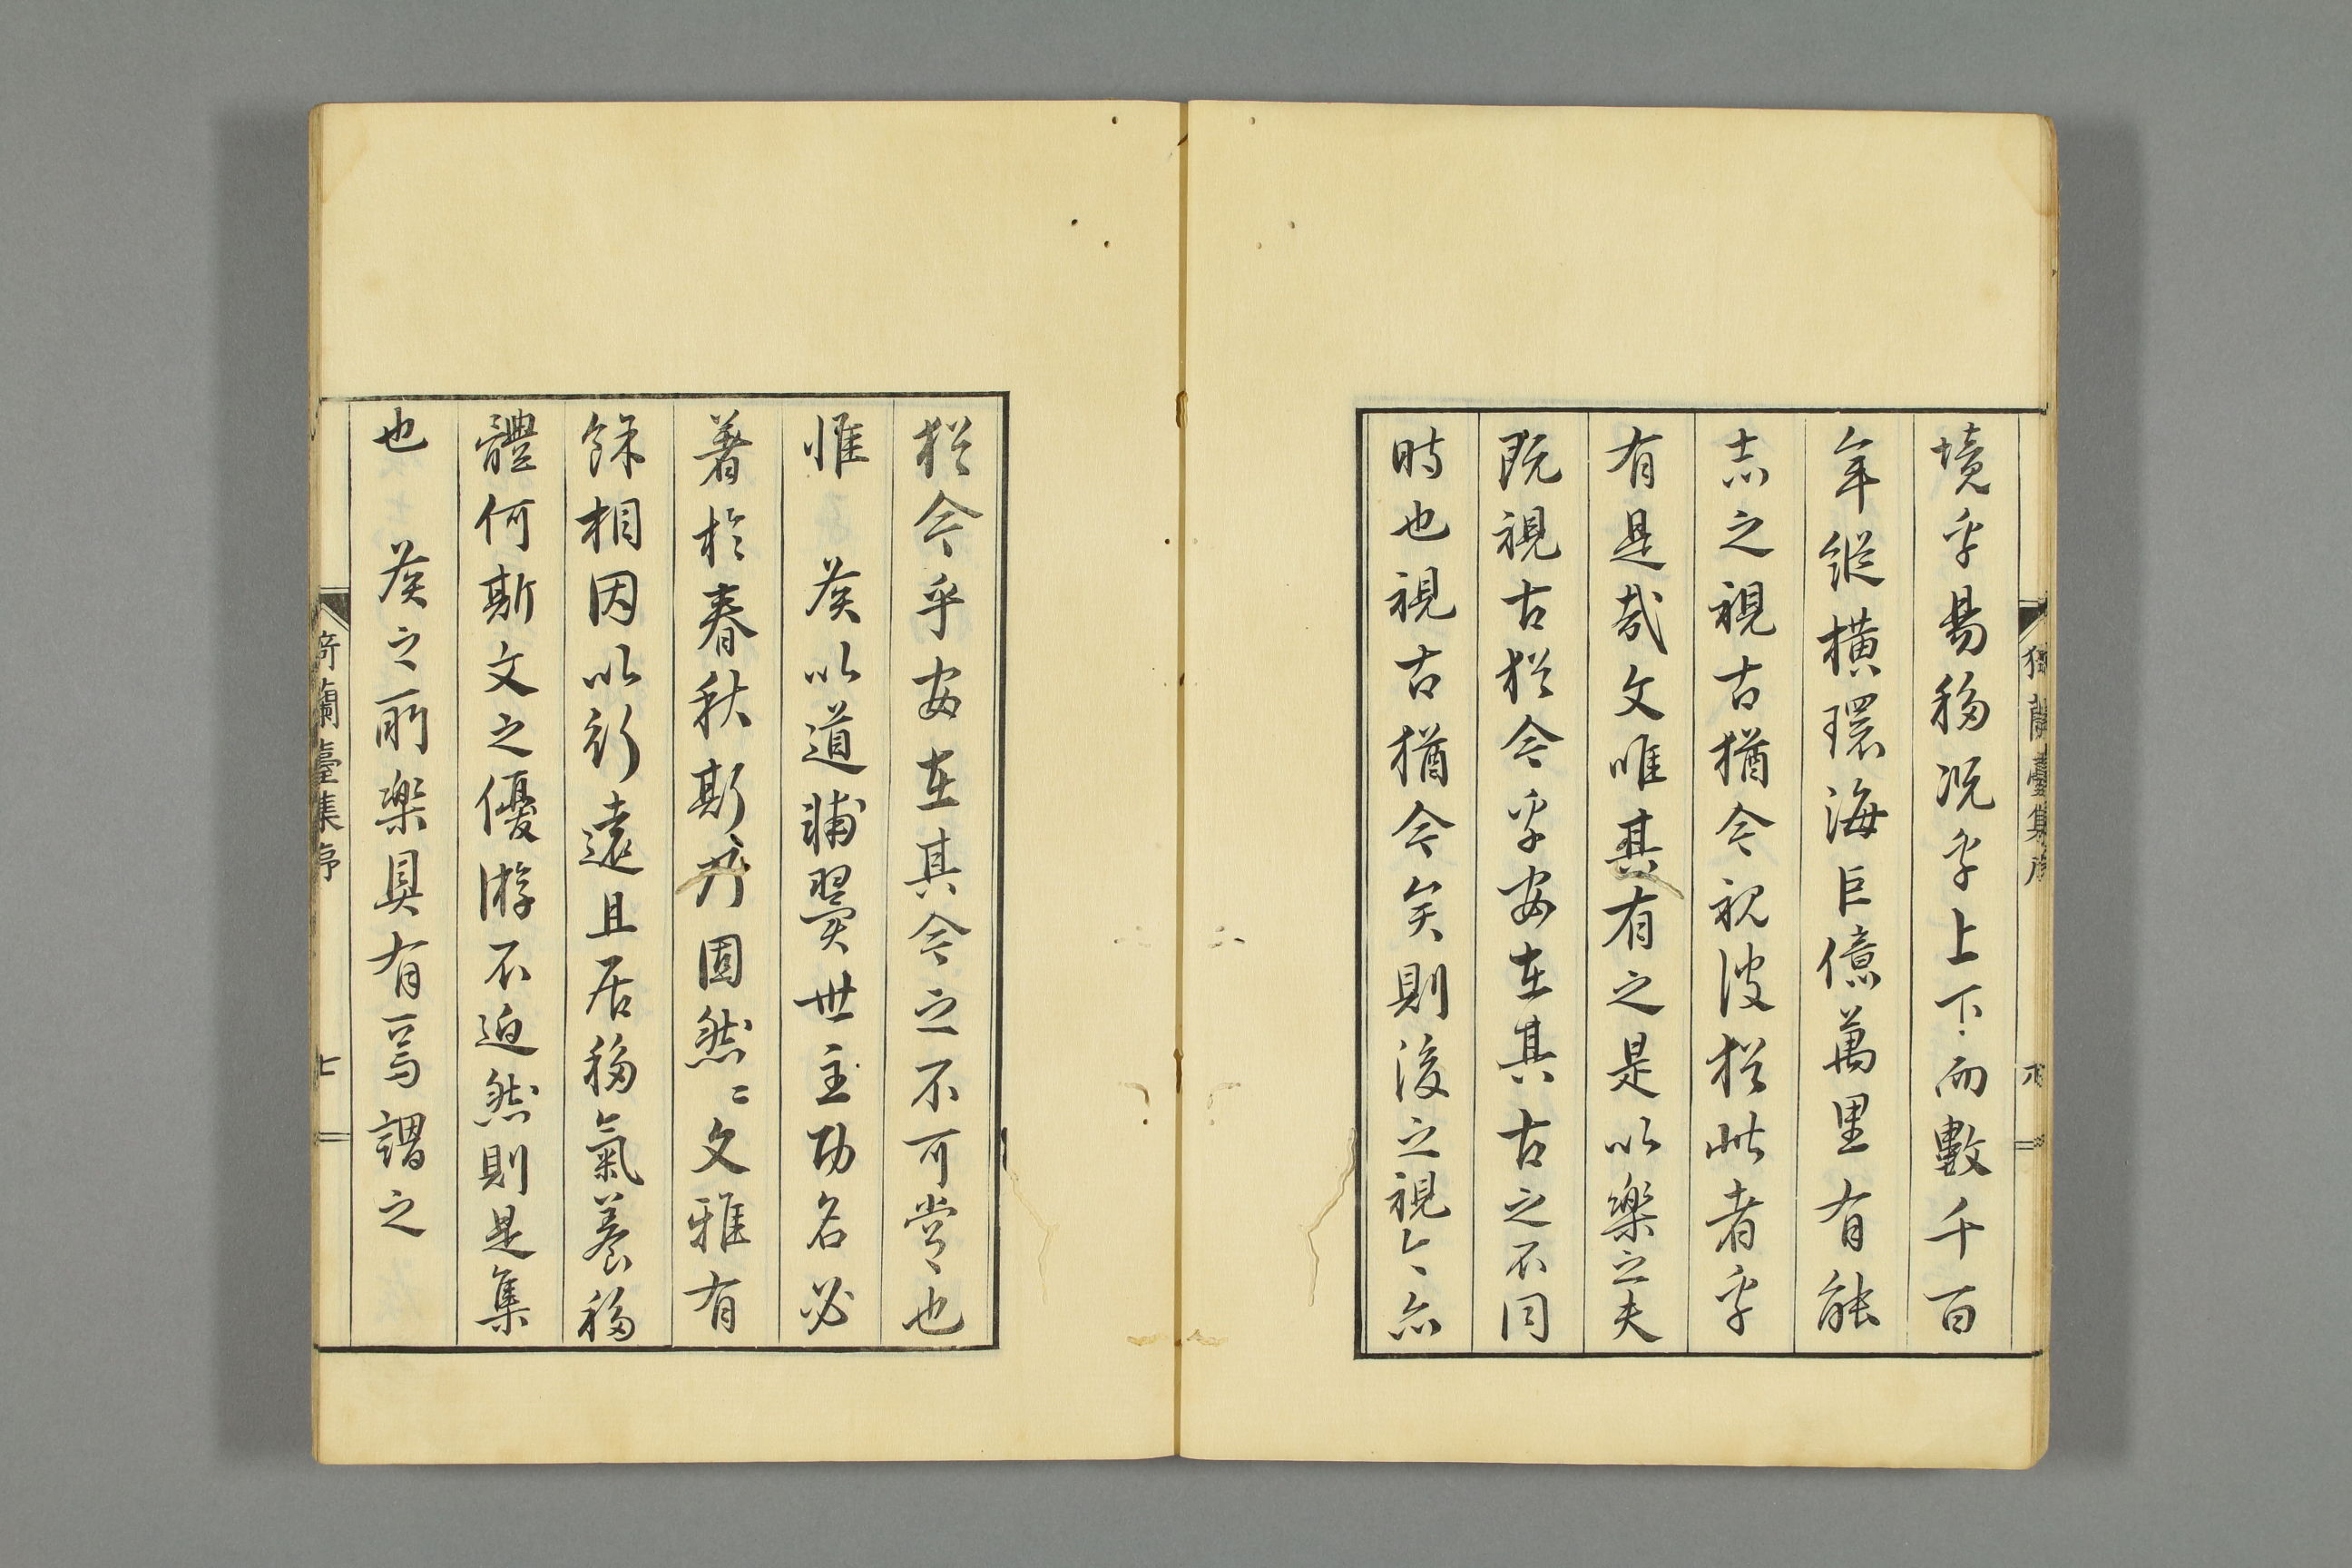 境乎易移况乎上下而數千百
年縱橫環海巨億萬里有能
志之視古猶今視彼猶此者乎
有是哉文唯其有之是以樂之夫
既視古猶今乎安在其古之不同
時也視古猶今矣則後之視今亦
猶今乎安在其今之不可嘗也
惟　侯以道輔翼世主功名必
著於春秋斯乃固然〻文雅有
餘相因以行遠且居移氣養移
體何斯文之優游不迫然則是集
也　侯之所樂具有焉謂之
猗蘭臺集序
七